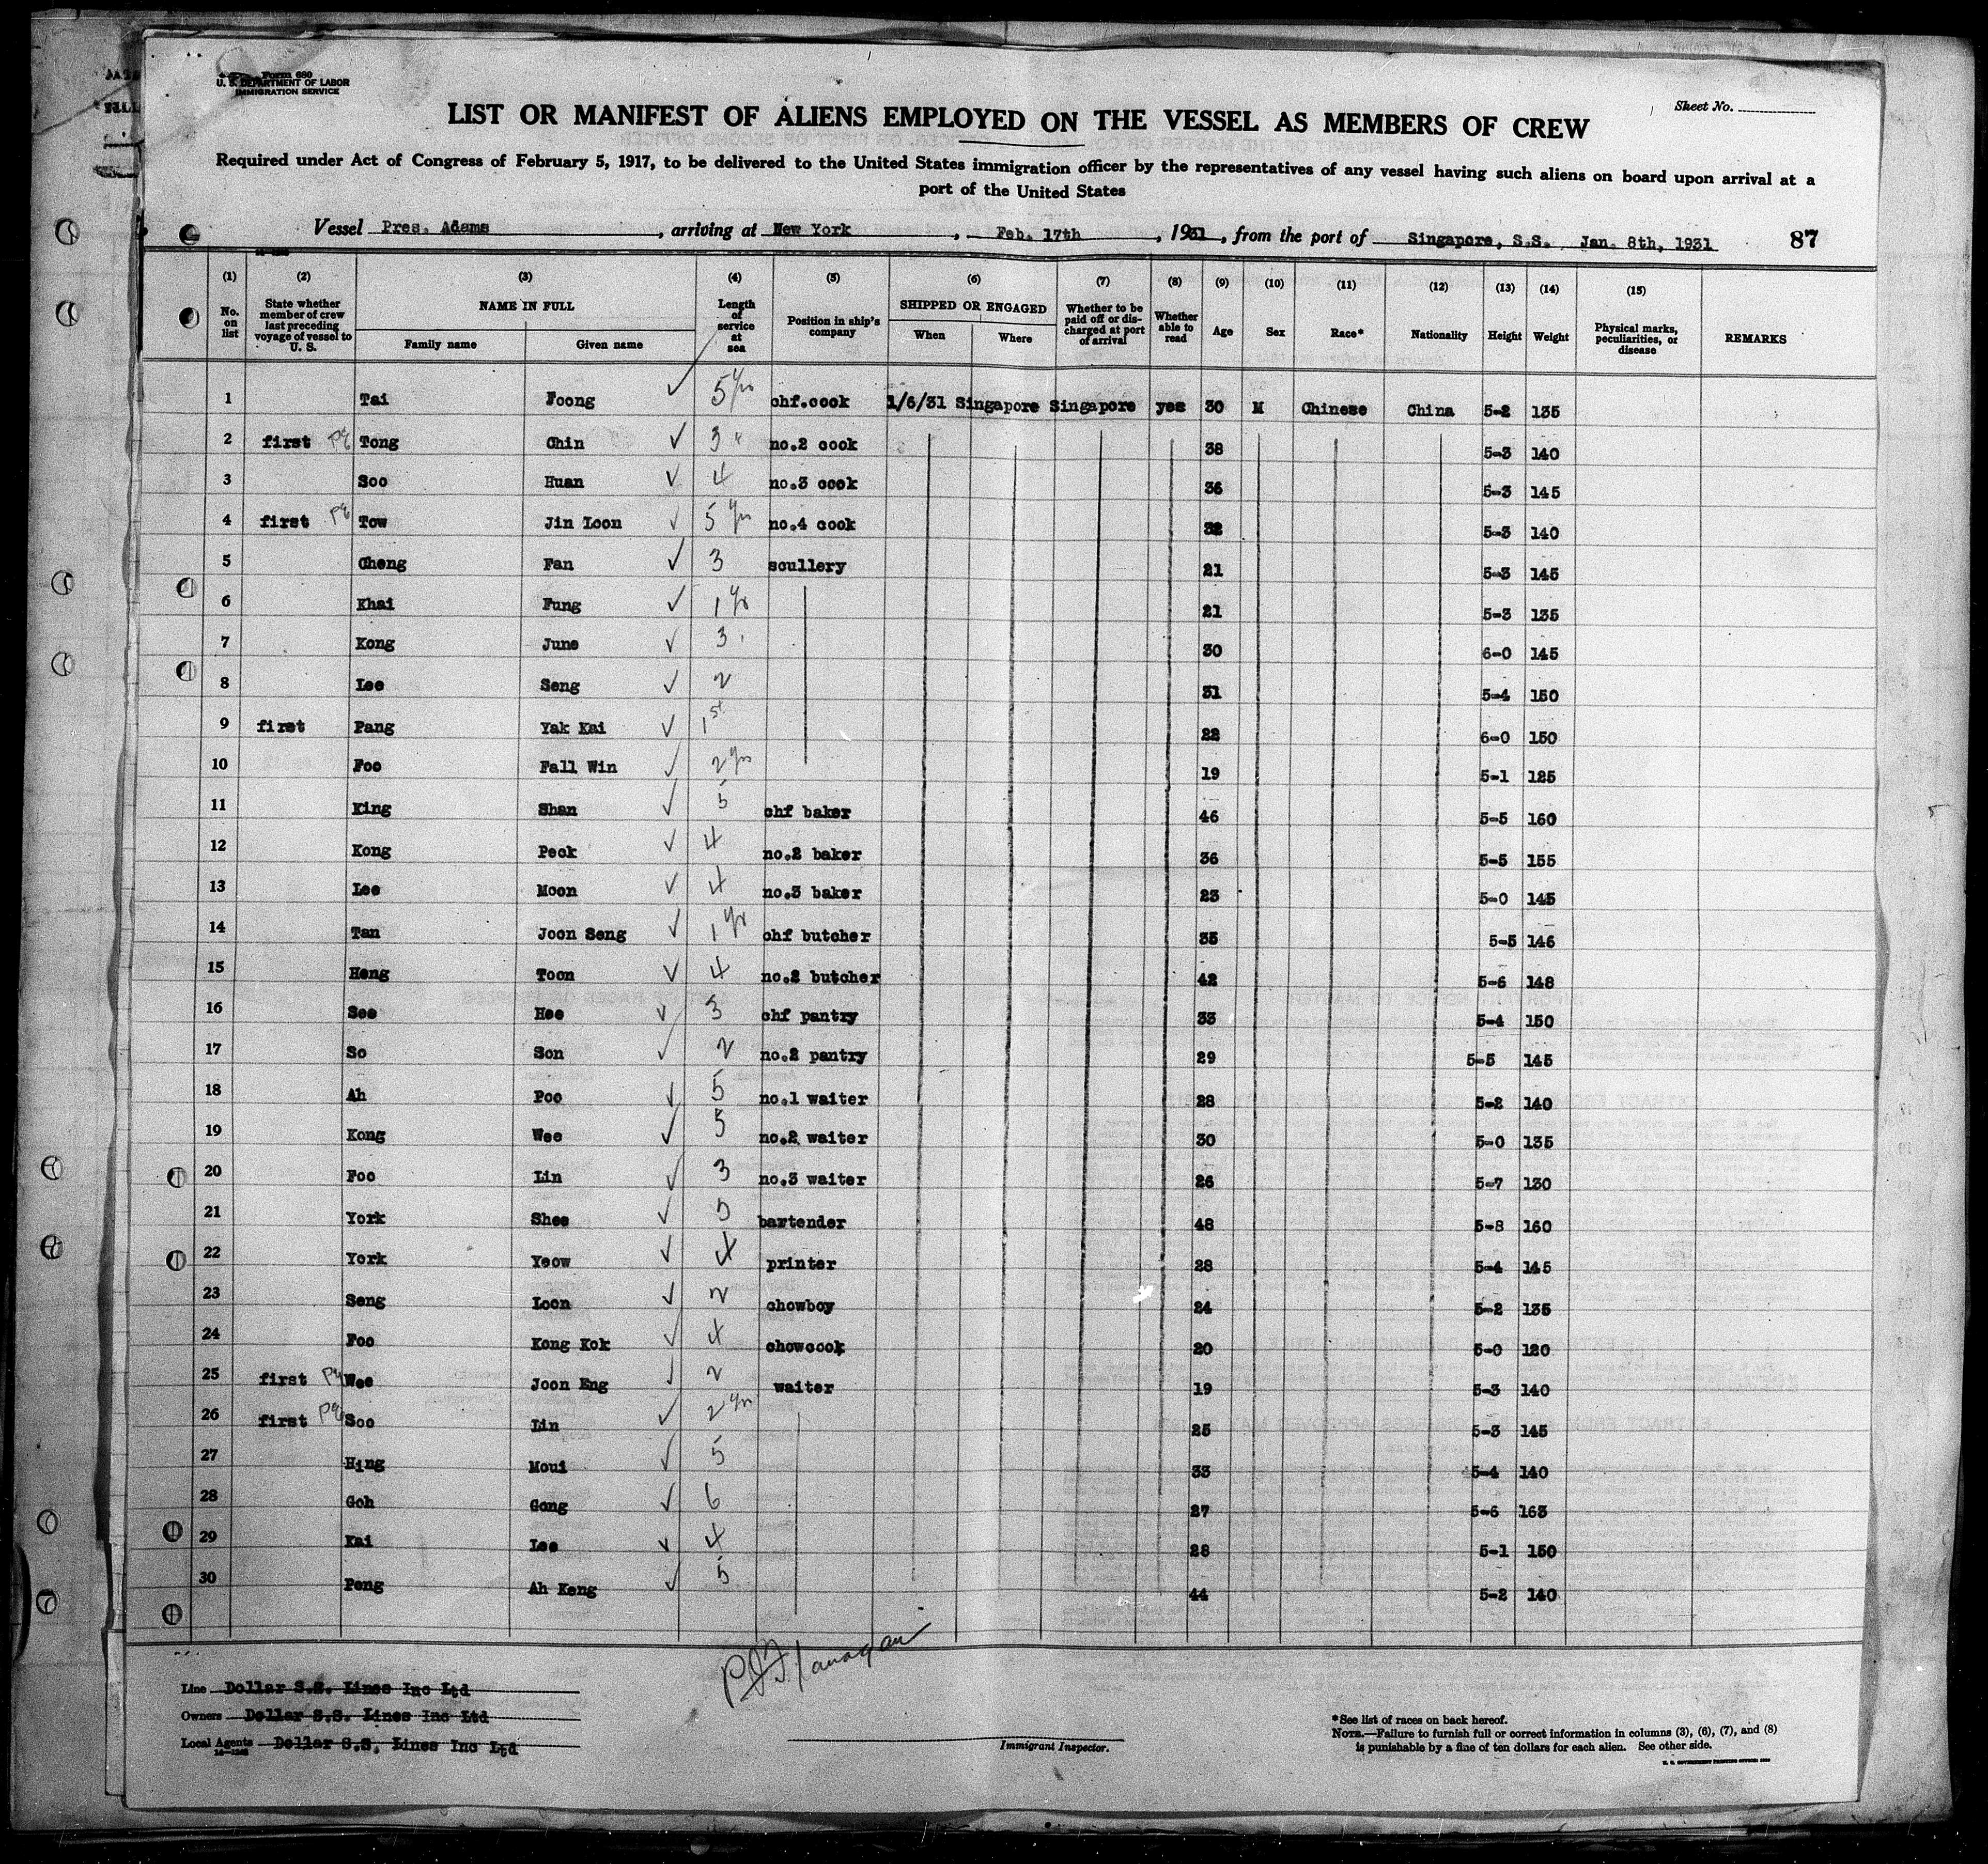 Form 680
U. S. DEPARTMENT OF LABOR
IMMIGRATION SERVICE
Sheet No.
LIST OR MANIFEST OF ALIENS EMPLOYED ON THE VESSEL AS MEMBERS OF CREW
Required under Act of Congress of February 5, 1917, to be delivered to the United States immigration officer by the representatives of any vessel having such aliens on board upon arrival at a
port of the United States
Vessel Pres. Adams, arriving at New York, Feb. 17th, 1931, from the port of Singapore, S.S. Jan. 8th, 1931 87
(1) No. on list (2) State whether member of crew last preceding voyage of vessel to U. S. (3) NAME IN FULL Family name Given name (4) Length of service at sea (5) Position in ship's company (6) SHIPPED OR ENGAGED When Where (7) Whether to be paid off or discharged at port of arrival (8) Whether able to read (9) Age (10) Sex (11) Race* (12) Nationality (13) Height (14) Weight (15) Physical marks, peculiarities, or disease REMARKS
1 Tai Foong ✓ 5 yrs chf.cook 1/6/31 Singapore Singapore yes 30 M Chinese China 5-2 135
2 first Tong Chin ✓ 3 " no.2 cook 38 5-3 140
3 Soo Huan ✓ 4 no.3 cook 36 5-3 145
4 first Tow Jin Loon ✓ 5 yrs no.4 cook 32 5-3 140
5 Cheng Fan ✓ 3 scullery 21 5-3 145
6 Khai Fung ✓ 1 yr 21 5-3 135
7 Kong June ✓ 3 30 6-0 145
8 Lee Seng ✓ 2 31 5-4 150
9 first Pang Yak Kai ✓ 1st 22 6-0 150
10 Foo Fall Win ✓ 2 yrs 19 5-1 125
11 King Shan ✓ 5 chf baker 46 5-5 160
12 Kong Peck ✓ 4 no.2 baker 36 5-5 155
13 Lee Moon ✓ 4 no.3 baker 23 5-0 145
14 Tan Joon Seng ✓ 1 yr chf butcher 35 5-5 146
15 Heng Toon ✓ 4 no.2 butcher 42 5-6 148
16 See Hee ✓ 3 chf pantry 33 5-4 150
17 So Son ✓ 2 no.2 pantry 29 5-5 145
18 Ah Poo ✓ 5 no.1 waiter 28 5-2 140
19 Kong Wee ✓ 5 no.2 waiter 30 5-0 135
20 Foo Lin ✓ 3 no.3 waiter 26 5-7 130
21 York Shee ✓ 5 bartender 48 5-8 160
22 York Yeow ✓ 4 printer 28 5-4 145
23 Seng Loon ✓ 2 chowboy 24 5-2 135
24 Foo Kong Kok ✓ 4 chowcook 20 5-0 120
25 first Wee Joon Eng ✓ 2 waiter 19 5-3 140
26 first Soo Lin ✓ 2 yrs 25 5-3 145
27 Hing Moui ✓ 5 33 5-4 140
28 Goh Gong ✓ 6 27 5-6 163
29 Kai Lee ✓ 4 28 5-1 150
30 Peng Ah Keng ✓ 5 44 5-2 140
Line Dollar S.S. Lines Inc Ltd
Owners Dollar S.S. Lines Inc Ltd
Local Agents Dollar S.S. Lines Inc Ltd
Immigrant Inspector.
*See list of races on back hereof.
NOTE.—Failure to furnish full or correct information in columns (3), (6), (7), and (8)
is punishable by a fine of ten dollars for each alien. See other side.